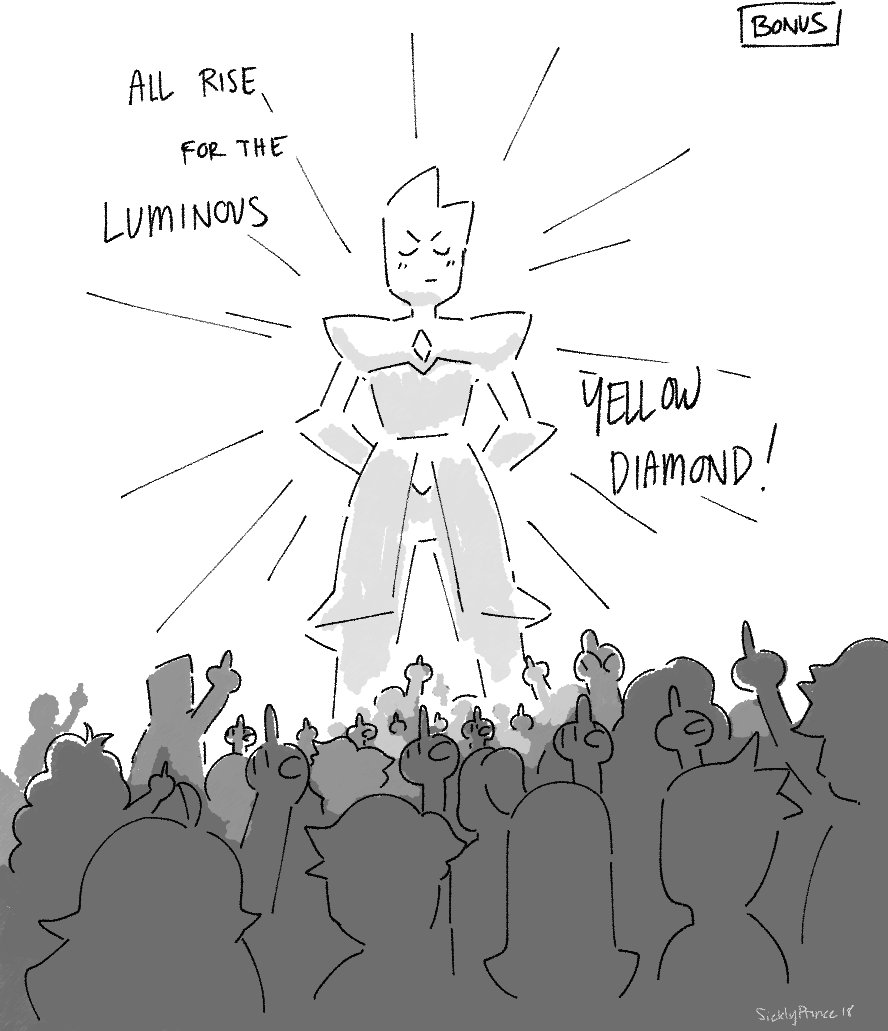 BONUS
ALL RISE
FOR THE
LUMINOUS
YELLOW
DIAMOND!
SicklyPrince 18